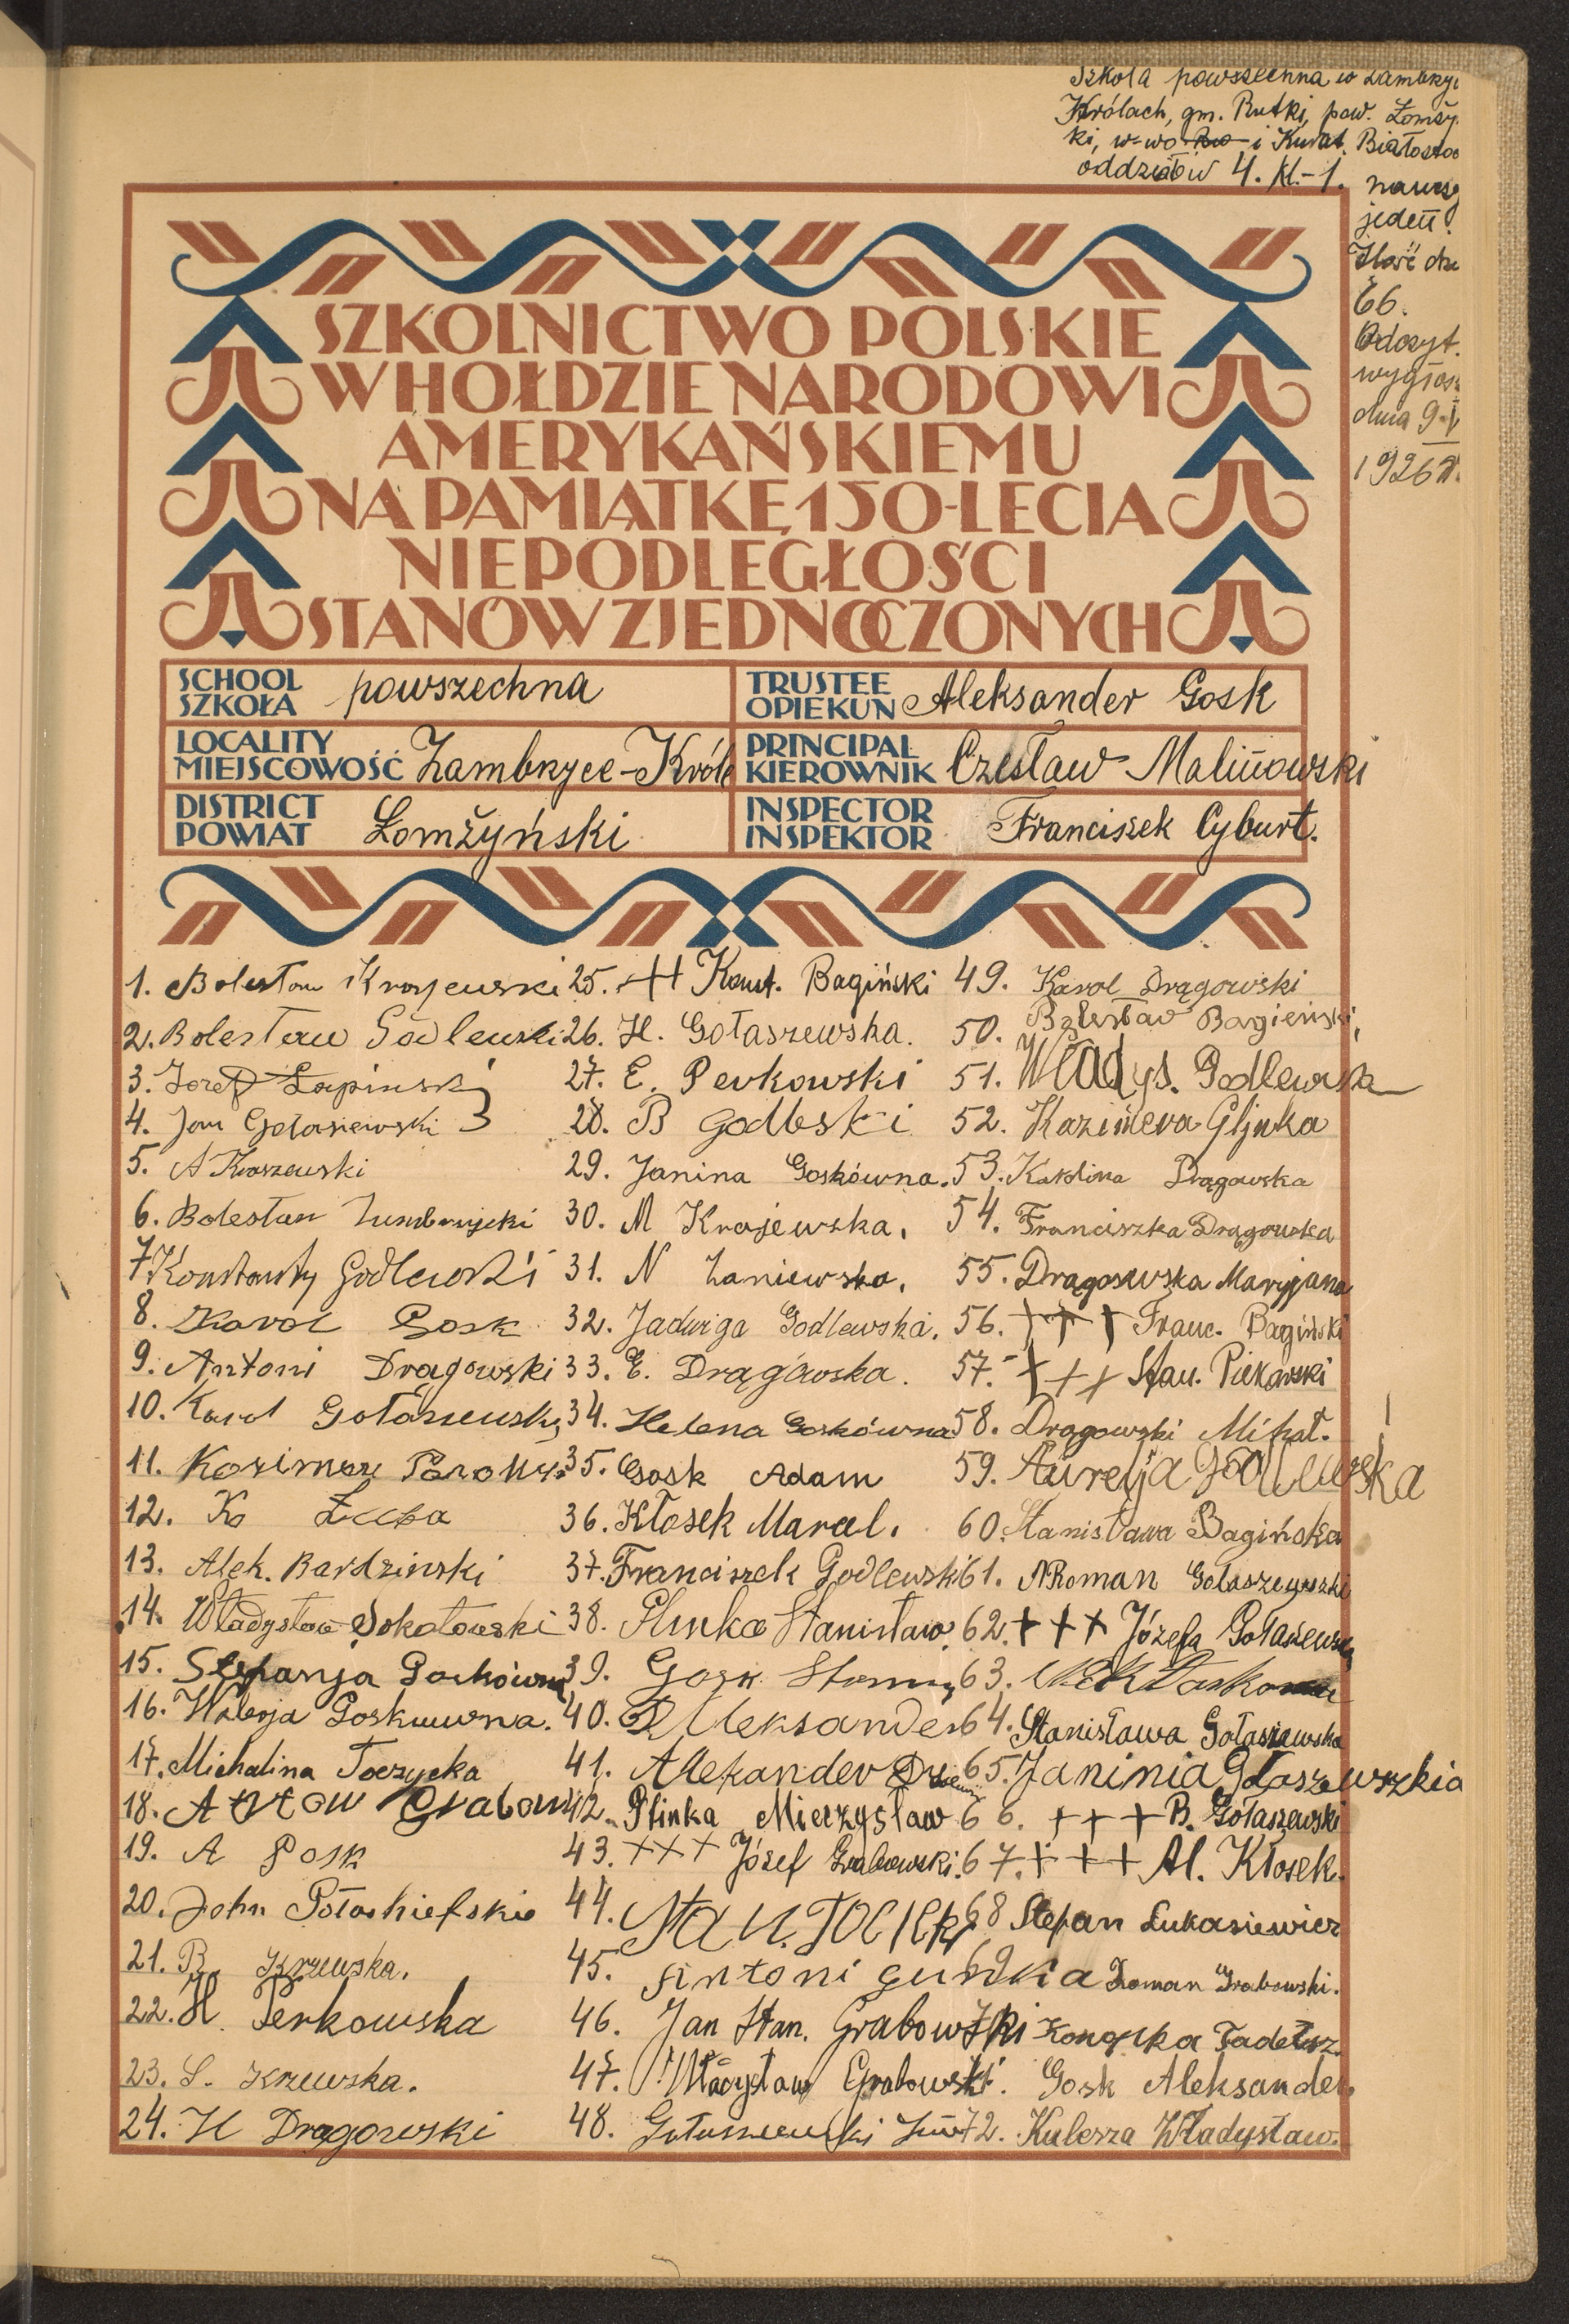 Szkoła powszechna w Zambrzy
Królach, gm. Rutki, pow. Łomży
ki, w-wo i Kurat. Białostoc
oddziałów 4. kl.-1. naucz
jeden.
Ilość dzi
66.
Odczyt.
wygłosz
dnia 9.V
1926 r.
SZKOLNICTWO POLSKIE
W HOŁDZIE NARODOWI
AMERYKAŃSKIEMU
NA PAMIĄTKĘ 150-LECIA
NIEPODLEGŁOŚCI
STANÓW ZJEDNOCZONYCH
SCHOOL SZKOŁA powszechna
TRUSTEE OPIEKUN Aleksander Gosk
LOCALITY MIEJSCOWOŚĆ Zambrzyce-Króle
PRINCIPAL KIEROWNIK Czesław Malinowski
DISTRICT POWIAT Łomżyński
INSPECTOR INSPEKTOR Franciszek Cyburt.
1. Bolesław Krajewski
2. Bolesław Godlewski
3. Jozef Łapinski
4. Jan Gołasiewski
5. A Kraszewski
6. Bolesław Zambrzycki
7 Konstanty Godlewski
8. Karol Gosk
9. Antoni Dragowski
10. Karol Gołaszewski
11. Kazimierz
12. K Zęba
13. Alek. Bardzinski
14. Władysław Sokołowski
15. Stefanja Goskówna
16. Walerja Goskuwna.
17. Michalina Toczycka
18. Antow Grabow
19. A Gosk
20. John
21. B. Krzewska.
22. H. Perkowska
23. S. Krzewska.
24. H Dragowski
25. +++ Konst. Bagiński
26. H. Gołaszewska.
27. E. Perkowski
28. B Godleski
29. Janina Goskówna.
30. M Krajewska.
31. N Zaniewska.
32. Jadwiga Godlewska.
33. E. Drągowska.
34. Helena Goskówna
35. Gosk Adam
36. Kłosek Marcel.
37. Franciszek Godlewski
38. Glinka Stanisław
39. Gosk
40. Aleksander
41. Alekander
42. Glinka Mieczysław
43. +++ Józef Grabowski.
44. Stan. Tocki
45. Antoni
46. Jan Stan. Grabowski
47. Władysław Grabowski.
48. Gołaszewski
49. Karol Drągowski
50. Bolesław Bagieński,
51. Władys. Godlewska
52. Kazimiera Glinka
53. Karolina Dragowska
54. Franciszka Dragowska
55. Dragoswska Maryjana
56. +++ Franc. Bagiński
57. +++ Stan. Piekarski
58. Dragowski Michał.
59. Aurelja Godlewska
60. Stanisława Bagińska
61. Roman Gołaszewski
62. +++ Józefa Gołaszewska
63.
64. Stanisława Gołaszewska
65. Janinia Gołaszewszkia
66. +++ B. Gołaszewski
67. +++ Al. Kłosek.
68 Stefan Łukasiewicz
69 Roman Grabowski.
Konopka Tadeusz.
Gosk Aleksander.
72. Kulesza Władysław.